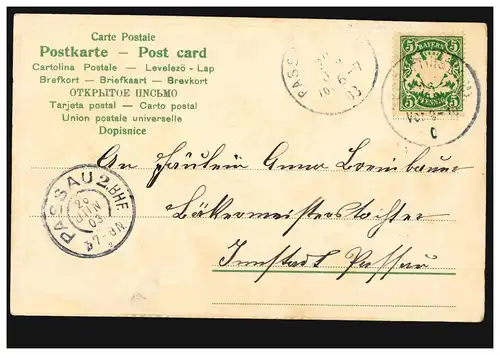 Carte Postale
Postkarte — Post card
Cartolina Postale — Levelező - Lap
Brefkort — Briefkaart — Brevkort
ОТКРЫТОЕ ПИСЬМО
Tarjeta postal — Carto postal
Union postale universelle
Dopisnice
PASS
6-7
03
BAYERN
5 5
5 PFENNIG 5
An Fräulein Anna
Bäkermeisterstochter
Innstadt Passau
PASSAU 2. BHF
26
JUN
03